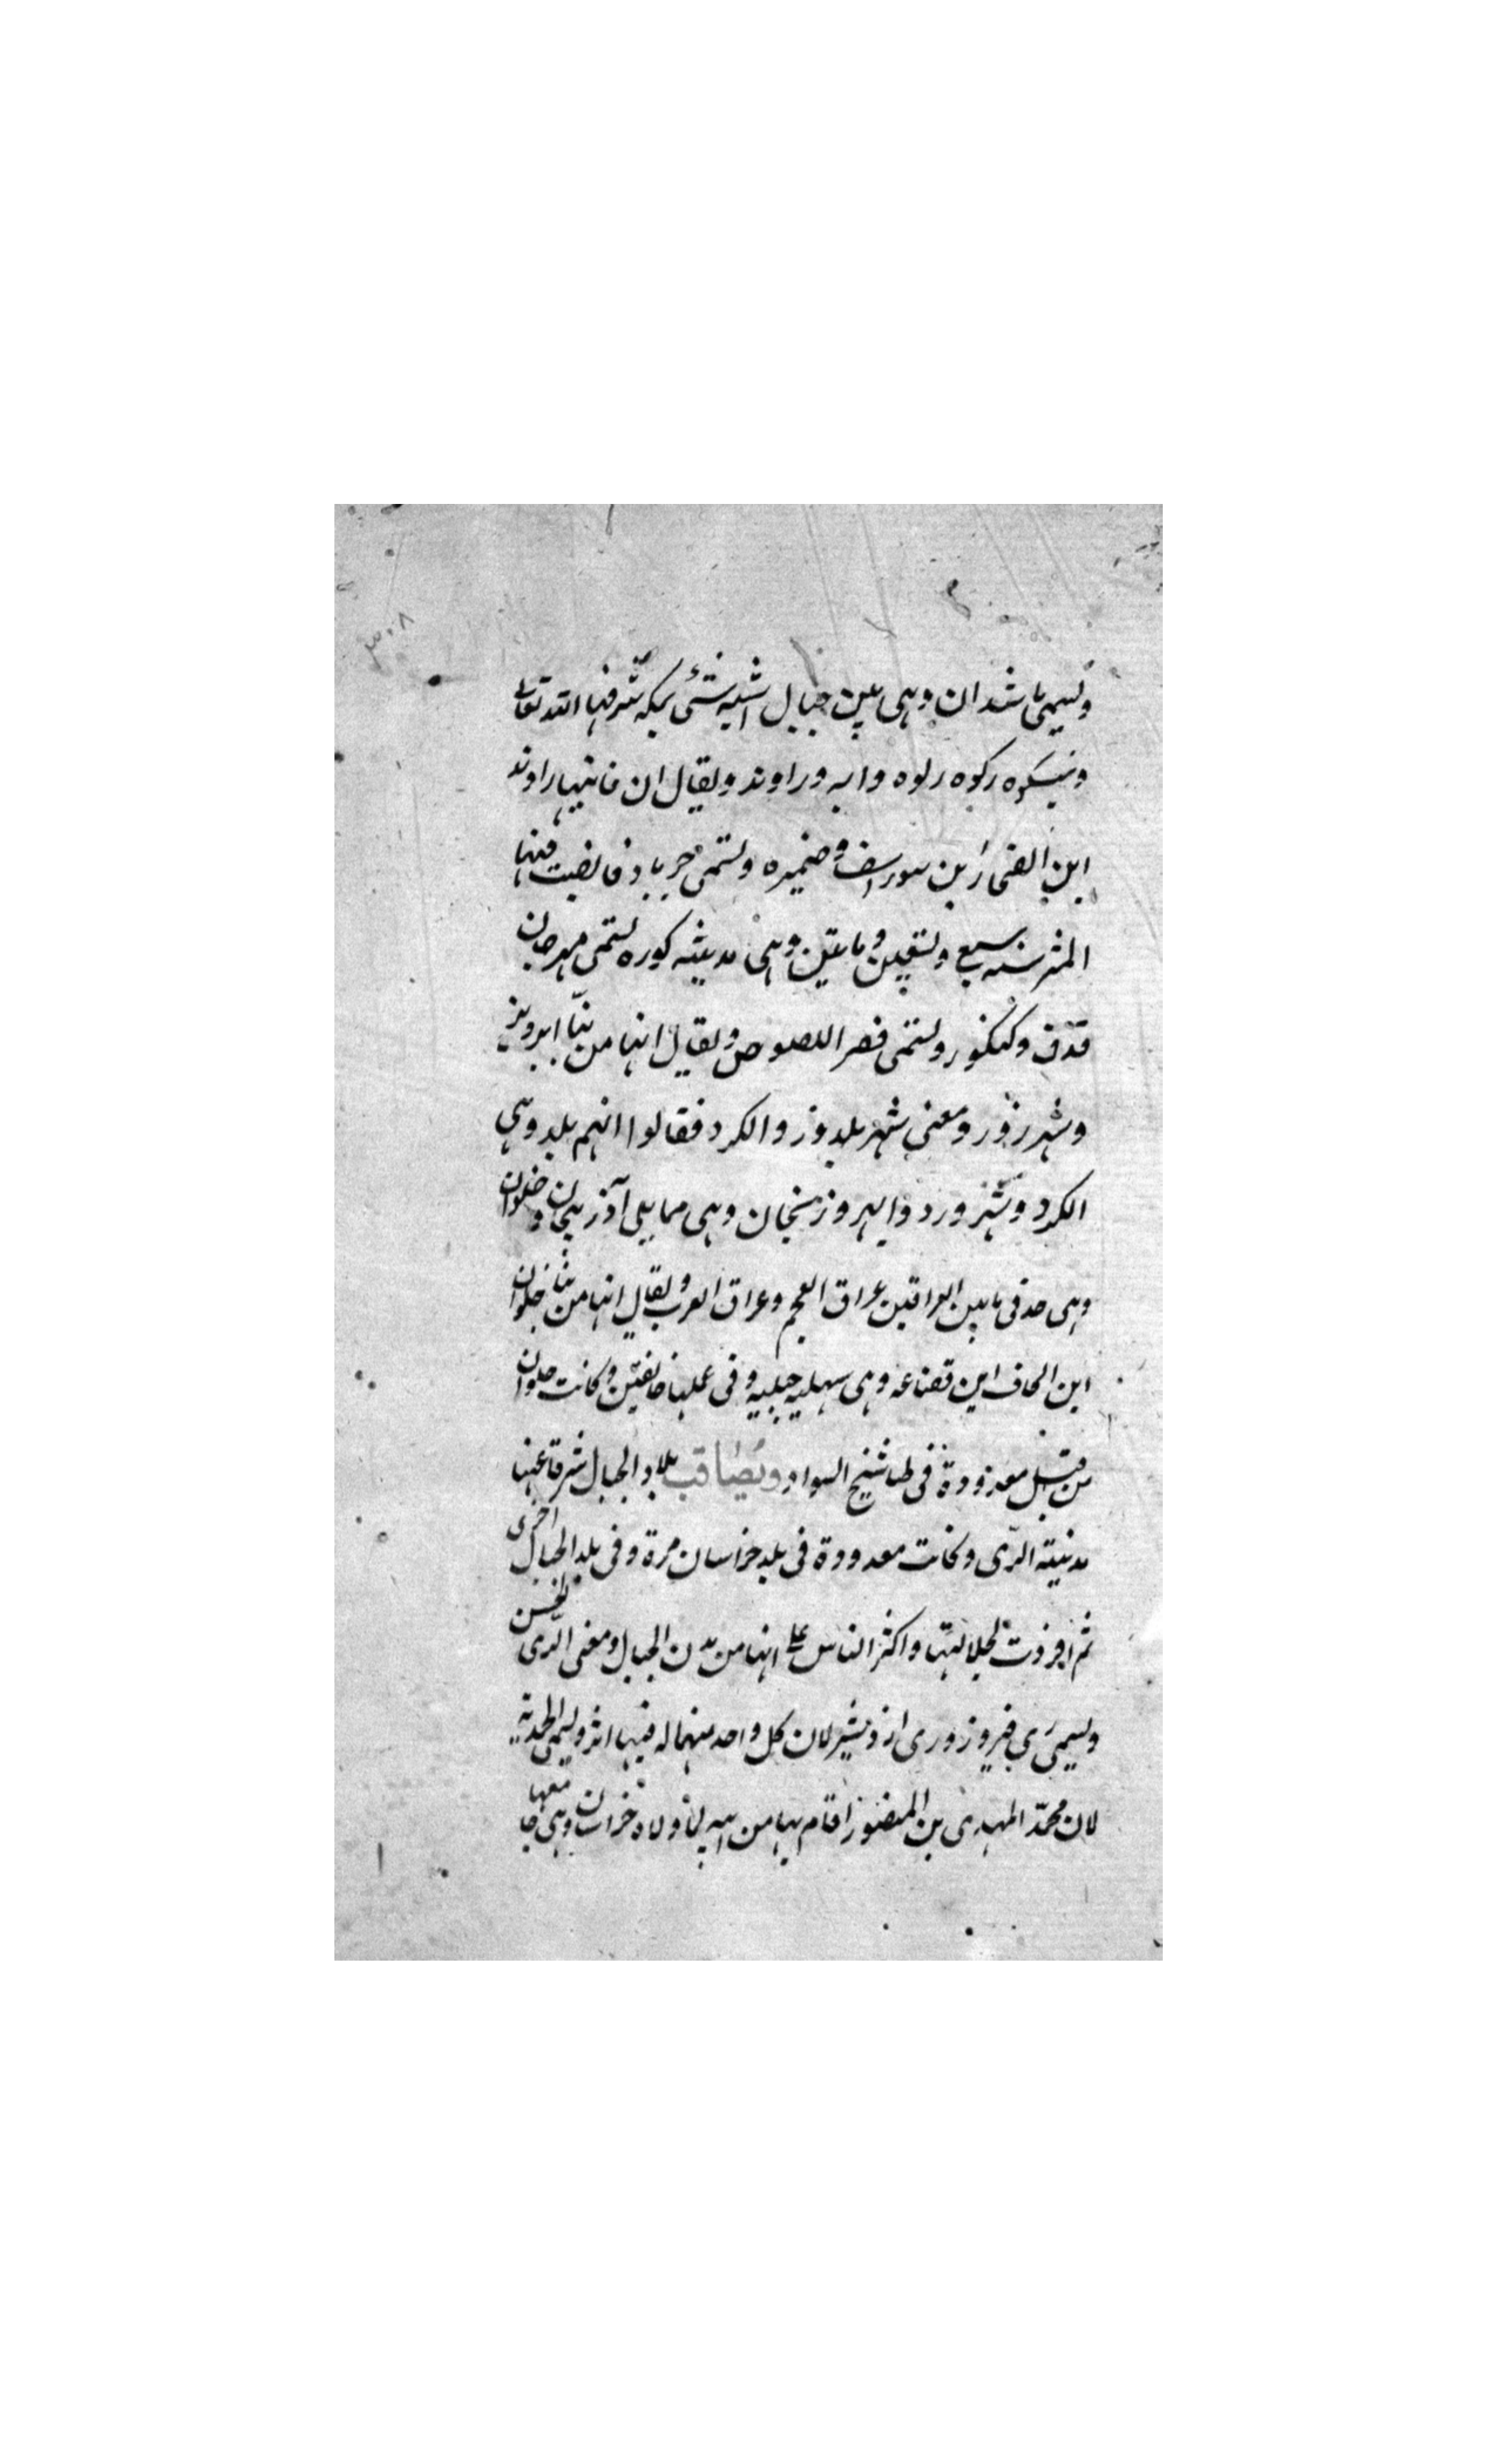 ٣٠٨
وتسمى ماشذان وهى بين جبال اشبه شئ بمكة شرفها الله تعالى
وتيسكوه ركوه رلوه وابه وراوند ويقال ان بانيها راوند
ابن الضحاك بن بيوراسف وضميره وتسمى جرباذقان بنيت فيها
المنر سنه سبع وتسعين ومائتين وهى مدينه كوره تسمى مهرجان
قذق وكنكور وتسمى قصر اللصوص ويقال انها من بنا ابرويز
وشهرزور ومعنى شهر بلد وزر والكرد فقالوا انهم بلد وهى
الكرد وشهرورد وابهر وزنجان وهى مما يلى آذربيجان وحلوان
وهى حد فى ما بين العراقين عراق العجم وعراق العرب ويقال انها من بنا حلوان
ابن الحاف ابن قضاعه وهى سهليه جبليه وفى عملها خانقين وكانت حلوان
من قبل معدودة فى طساسيج السواد ويصاقب بلاد الجبال شرقا عنها
مدينة الرى وكانت معدودة فى بلد خراسان مرة وفى بلد الجبال اخرى
ثم افردت لجلالتها واكثر الناس على انها من مدن الجبال ومعنى الرى الحسن
ويسمى رى فيروز ورى اردشير لان كل واحد منهما له فيها اثر ويسمى المحمدية
لان محمد المهدى بن المنصور اقام بها من ابيه لما ولاه خراسان وهى معها